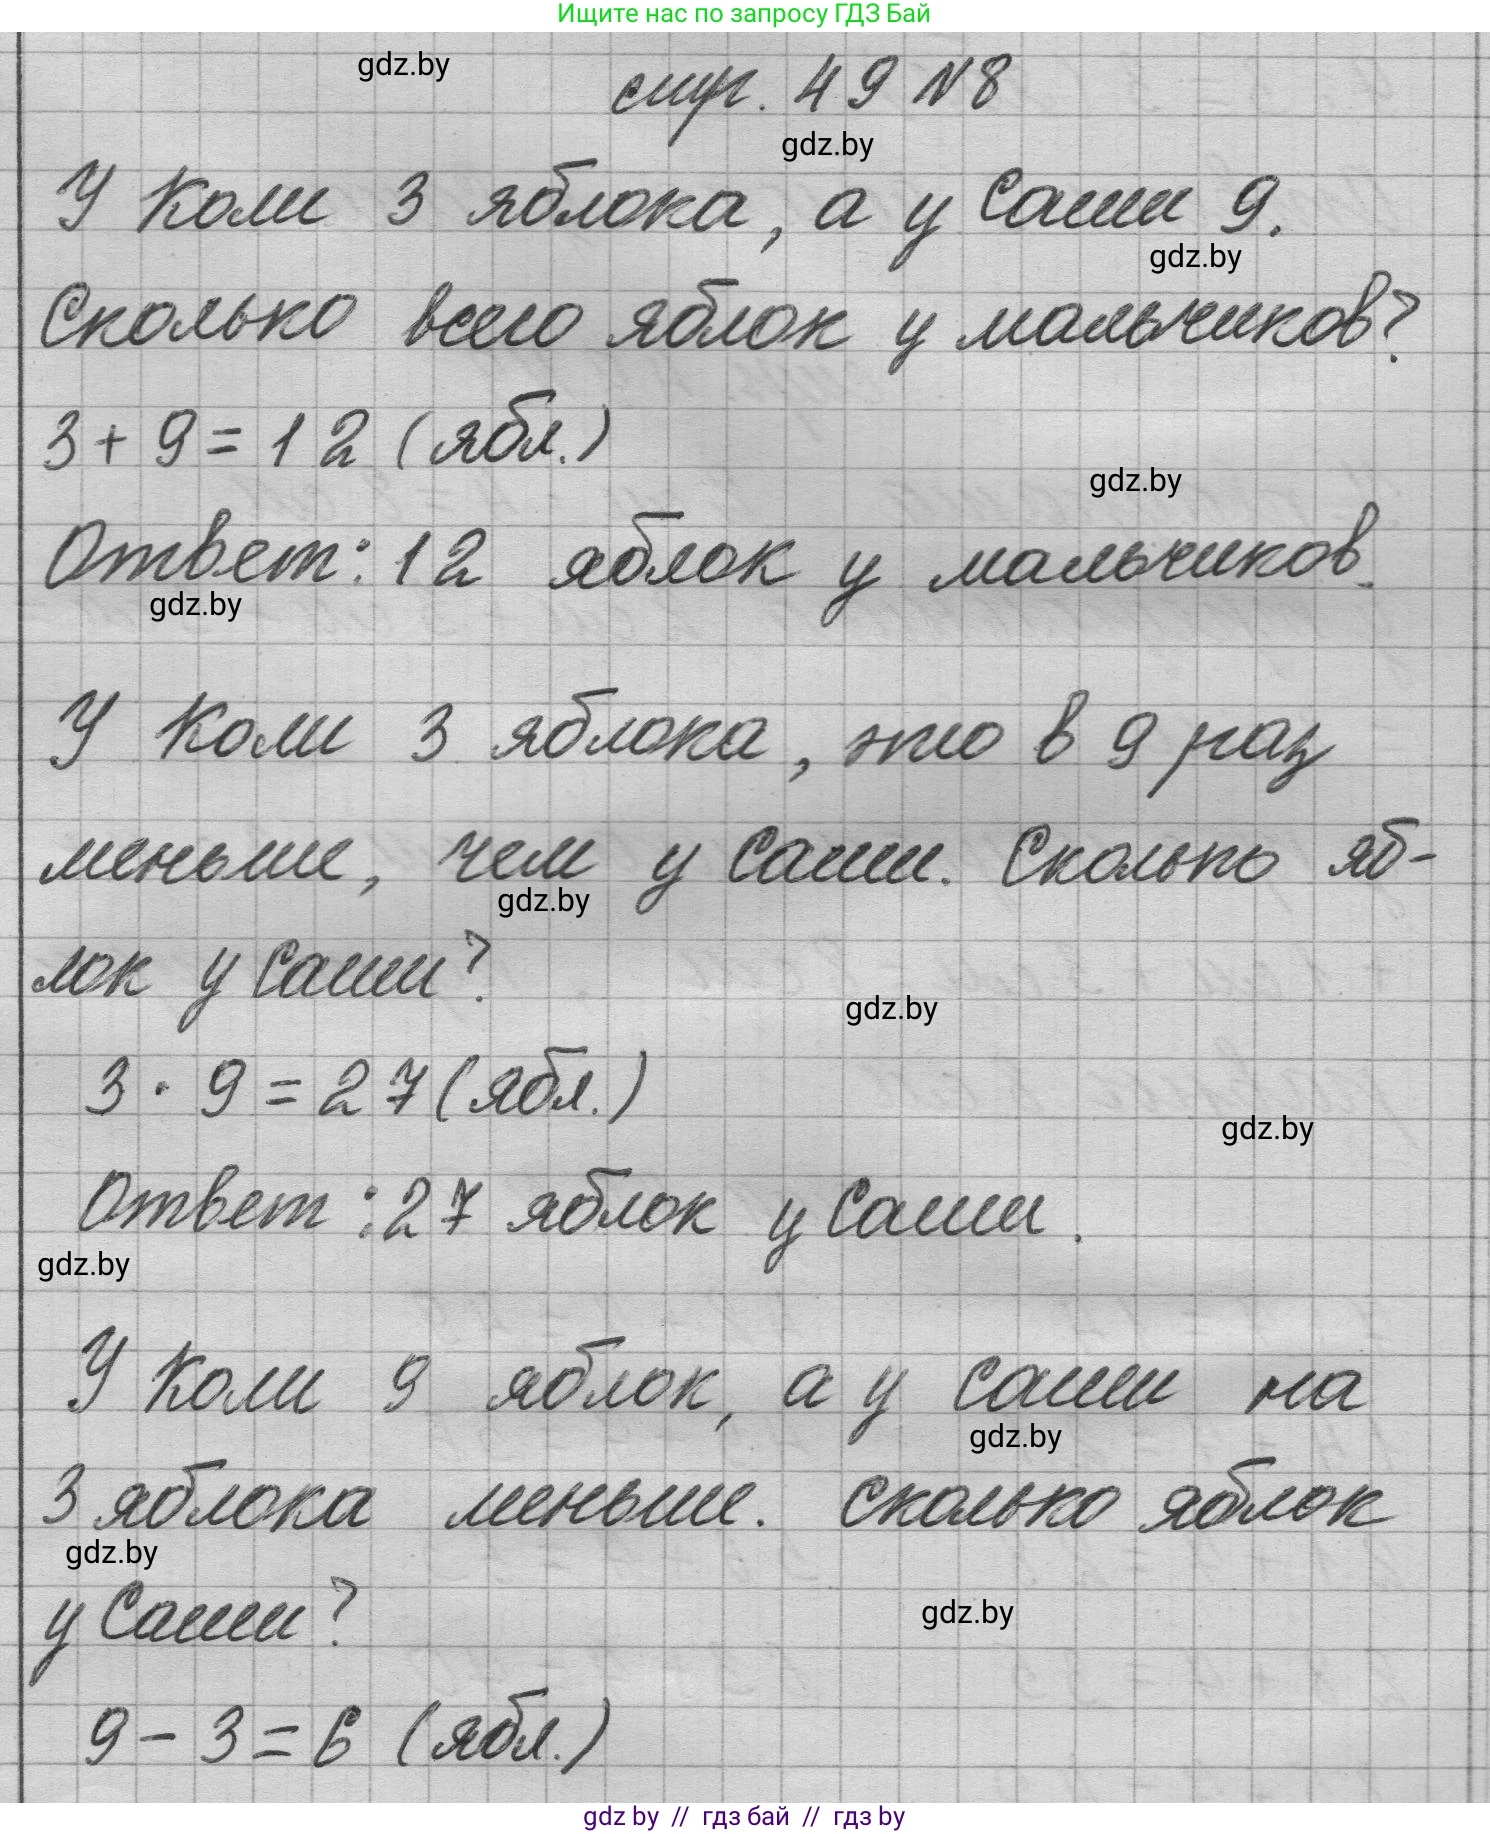 Ищите нас по запросу ГДЗ Бай
gdz.by
стр. 49 N8
gdz.by
У Коли 3 яблока, а у Саши 9.
gdz.by
Сколько всего яблок у мальчиков?
3 + 9 = 12 (ябл.)
gdz.by
Ответ: 12 яблок у мальчиков.
gdz.by
У Коли 3 яблока, это в 9 раз
меньше, чем у Саши. Сколько яб-
gdz.by
лок у Саши?
gdz.by
3 · 9 = 27 (ябл.)
gdz.by
Ответ: 27 яблок у Саши.
gdz.by
У Коли 9 яблок, а у Саши на
gdz.by
3 яблока меньше. Сколько яблок
gdz.by
у Саши?
gdz.by
9 - 3 = 6 (ябл.)
gdz.by // гдз бай // гдз by